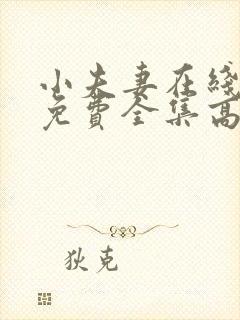 小夫妻在綫
免費全集高
狄克